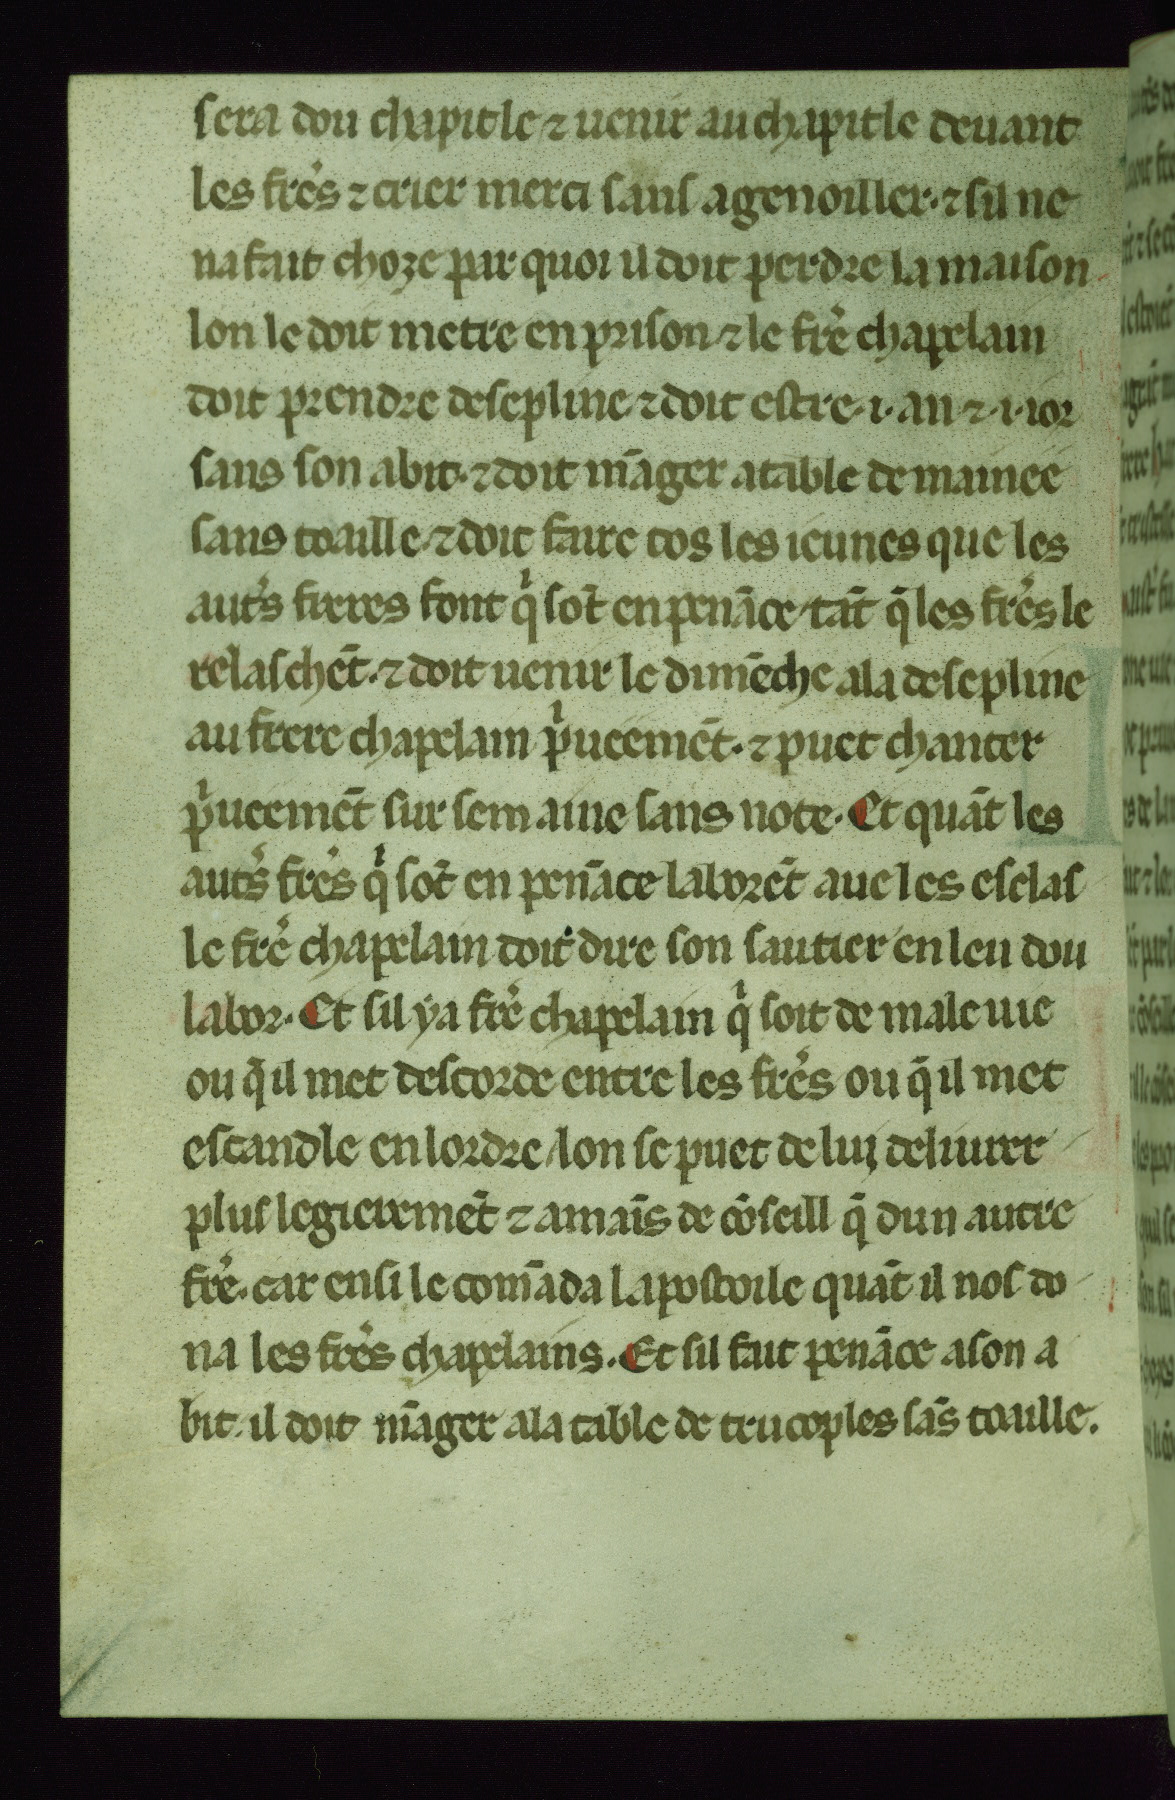 sera dou chapitle ⁊ uenir au chapitle deuant
les frẽs ⁊ crier merci sans agenoiller. ⁊ sil ne
na fait choze par quoi il doit perdre la maison
lon le doit metre en prison ⁊ le frẽ chapelain
doit prendre desepline ⁊ doit estre .i. an ⁊ .i. ior
sans son abit. ⁊ doit mãger a table de mainee
sans toaille. ⁊ doit faire tos les ieunes que les
autʼs freres font qͥ sõt en penãce tãt q̃ les frẽs le
relaschẽt. ⁊ doit uenir le dimẽche a la desepline
au frere chapelain pͥueemẽt. ⁊ puet chanter
pͥueemẽt sur semaine sans note. Et quãt les
autʼs frẽs qͥ sõt en penãce laborẽt aue les esclas
le frẽ chapelain doit dire son sautier en leu dou
labor. Et sil ya frẽ chapelain qͥ soit de male uie
ou q̃ il met descorde entre les frẽs ou q̃ il met
escandle en lordre / lon se puet de lui deliurer
plus legieremẽt ⁊ a maĩs de cõseill q̃ dun autre
frẽ. car ensi le comãda lapostoile quãt il nos do
na les frẽs chapelains. Et sil fait penãce a son a
bit. il doit mãger a la table de trucoples sãs toaille.